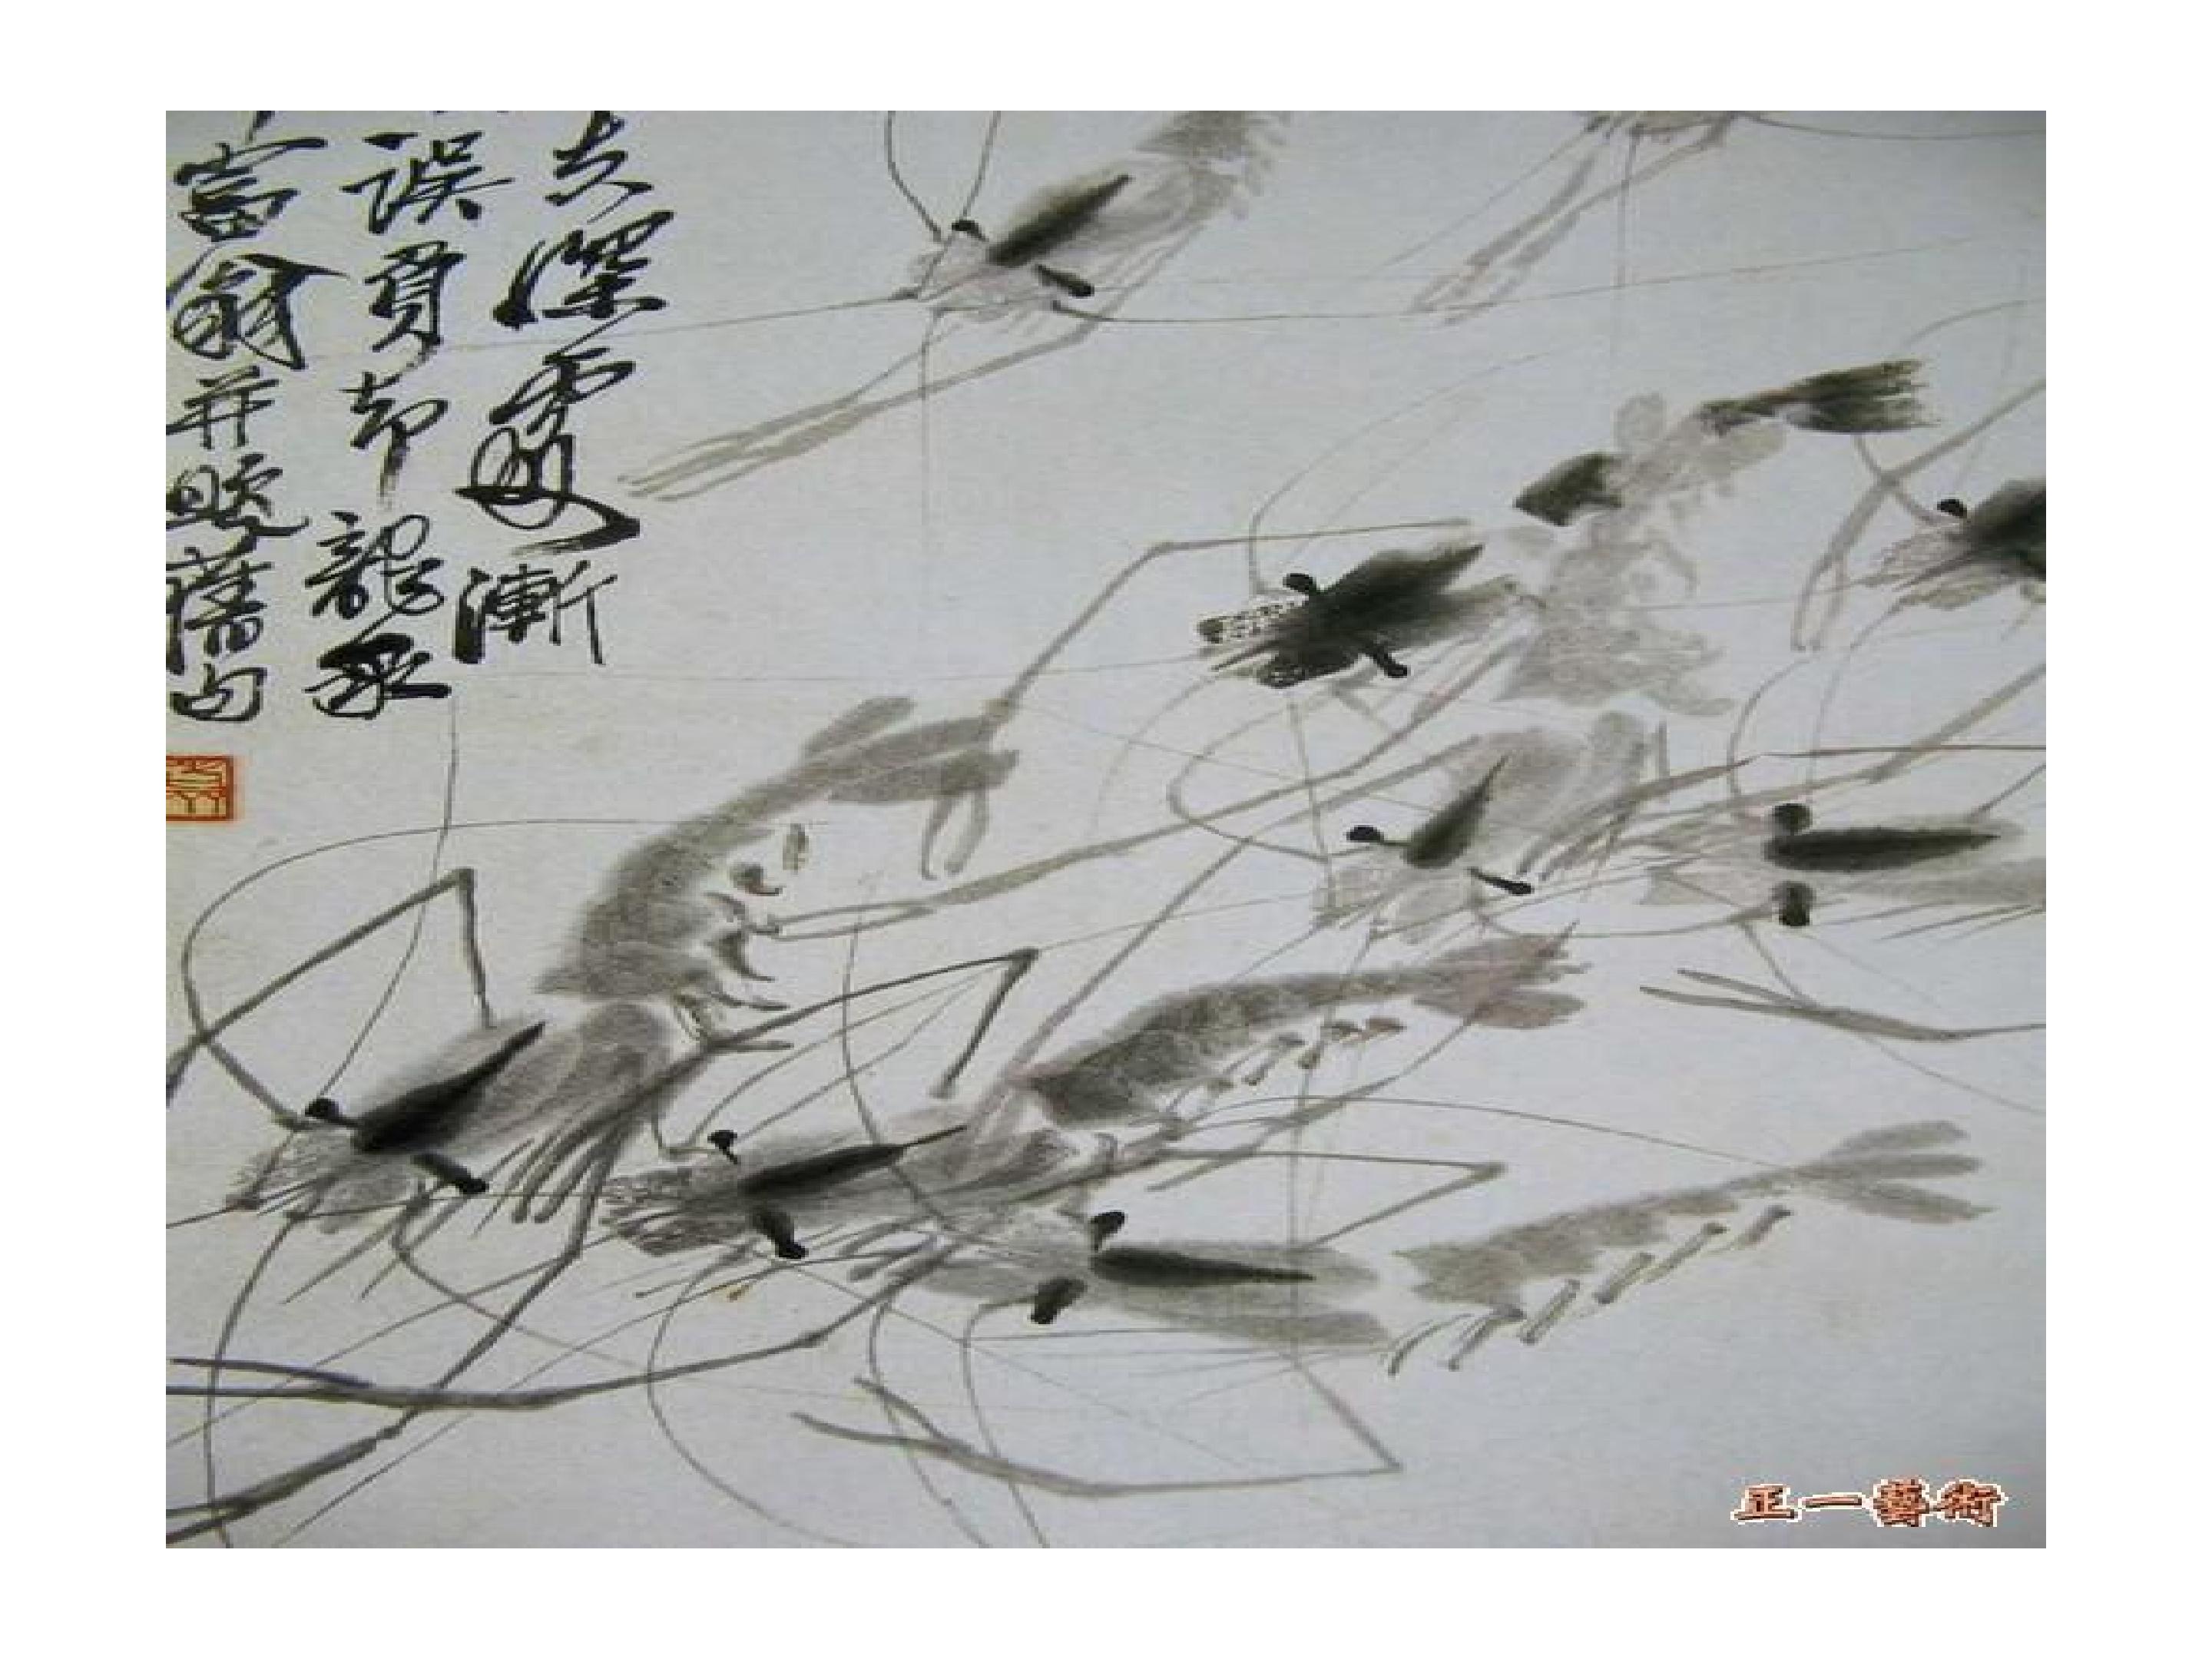 夫深處漸
誤負却龍泉
富翁并題舊句
正一藝術